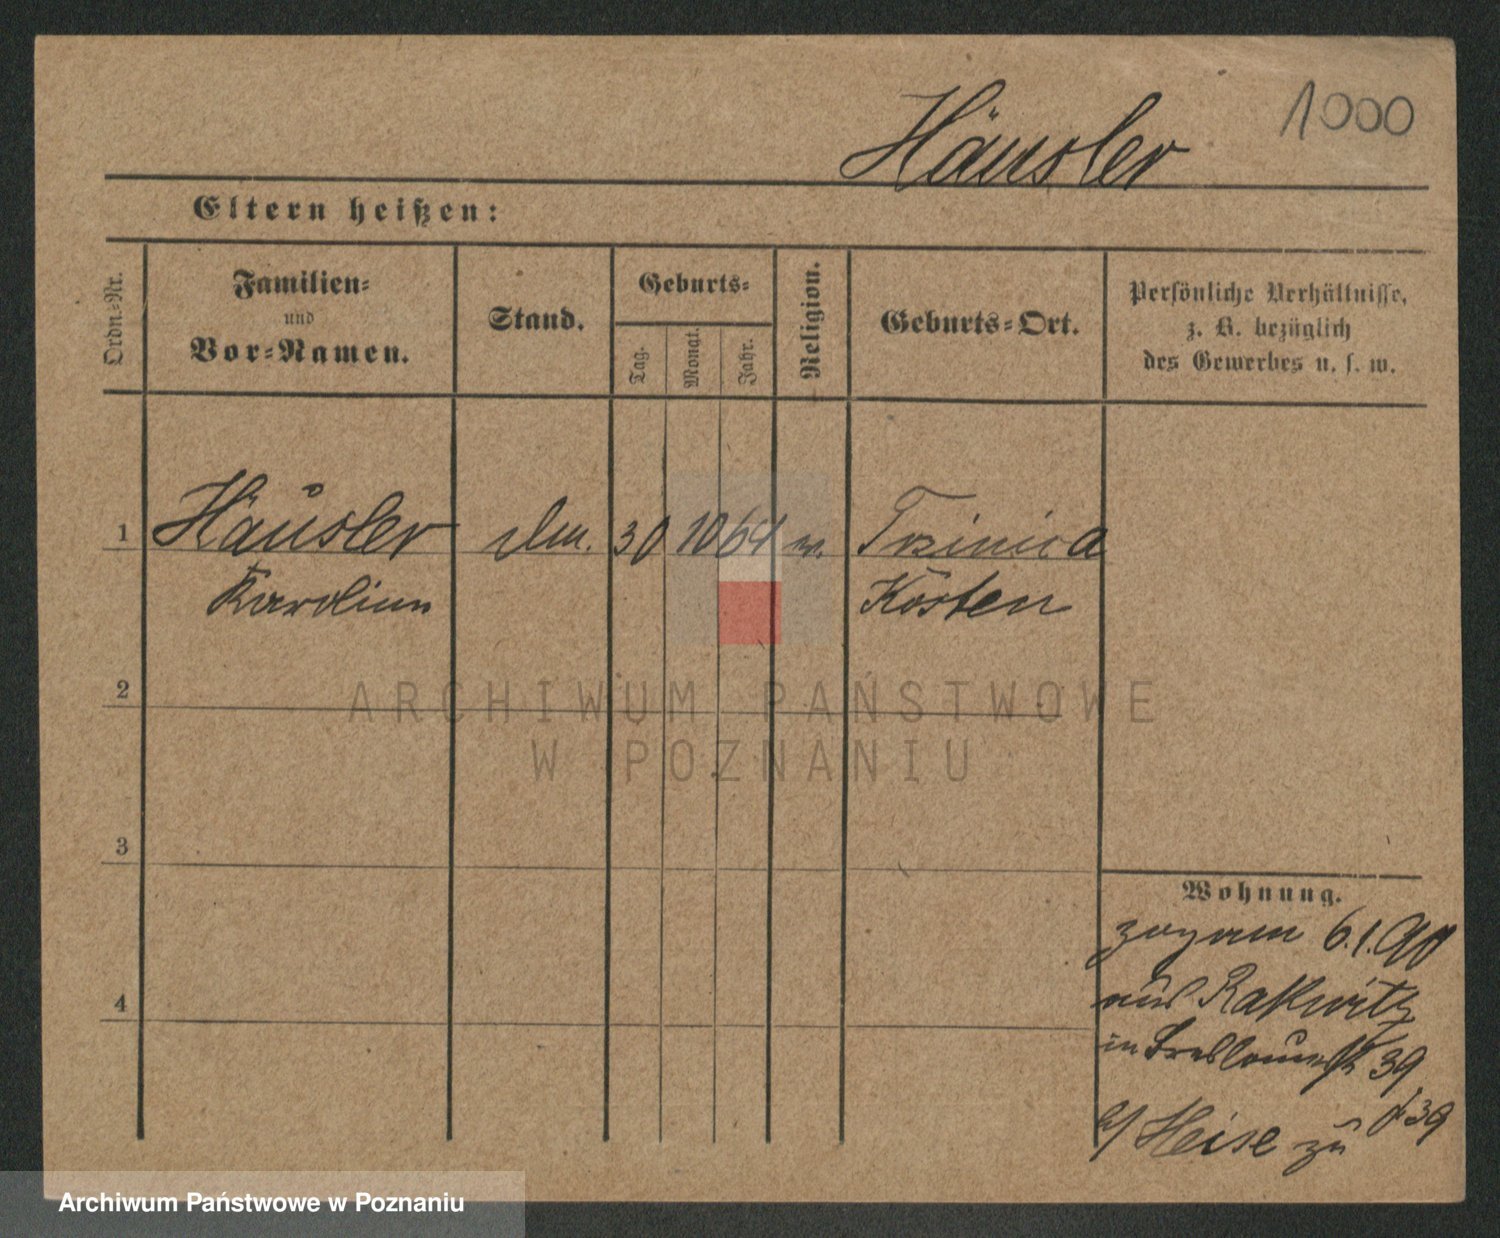 1000
Häusler
Eltern heißen:
Ordn.-Nr.
Familien-
und
Vor-Namen.
Stand.
Geburts-
Tag.
Monat.
Jahr.
Religion.
Geburts-Ort.
Persönliche Verhältnisse,
z. B. bezüglich
des Gewerbes u. s. w.
1 Häusler 30 10 64
Karoline Kosten
2
ARCHIWUM PAŃSTWOWE
W POZNANIU
3
Wohnung.
6.1.90
4
aus Rakwitz
in 39
Heise zu 39
Archiwum Państwowe w Poznaniu